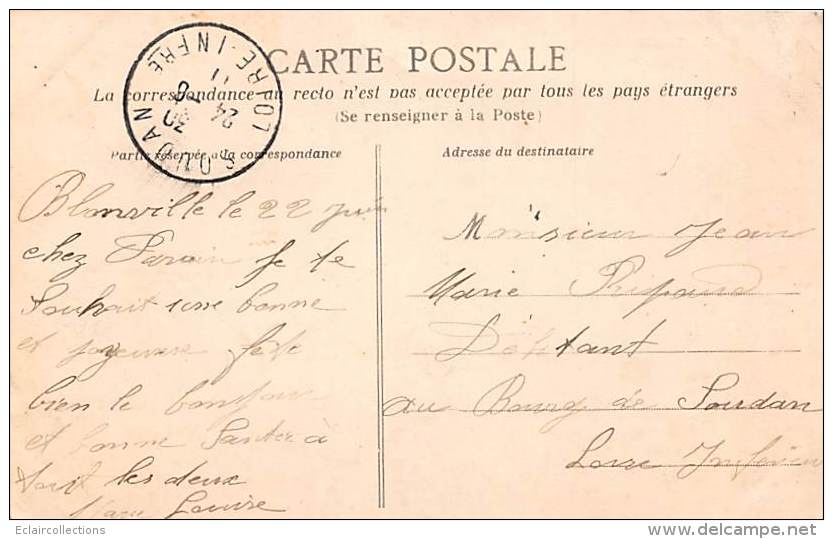 CARTE POSTALE
La correspondance au recto n'est pas acceptée par tous les pays étrangers
(Se renseigner à la Poste)
SOUDAN LOIRE-INFRE
24 - 6
11
Partie réservée à la correspondance
Adresse du destinataire
Blonville le 22 juin
chez je te
Souhait une bonne
et joyeuse fete
bien le bonjour
et bonne Santée à
tout les deux
Marie Louise
Monsieur Jean
Marie
Débitant
au Bourg de Soudan
Loire Inferieur
Eclaircollections
delcampe.net